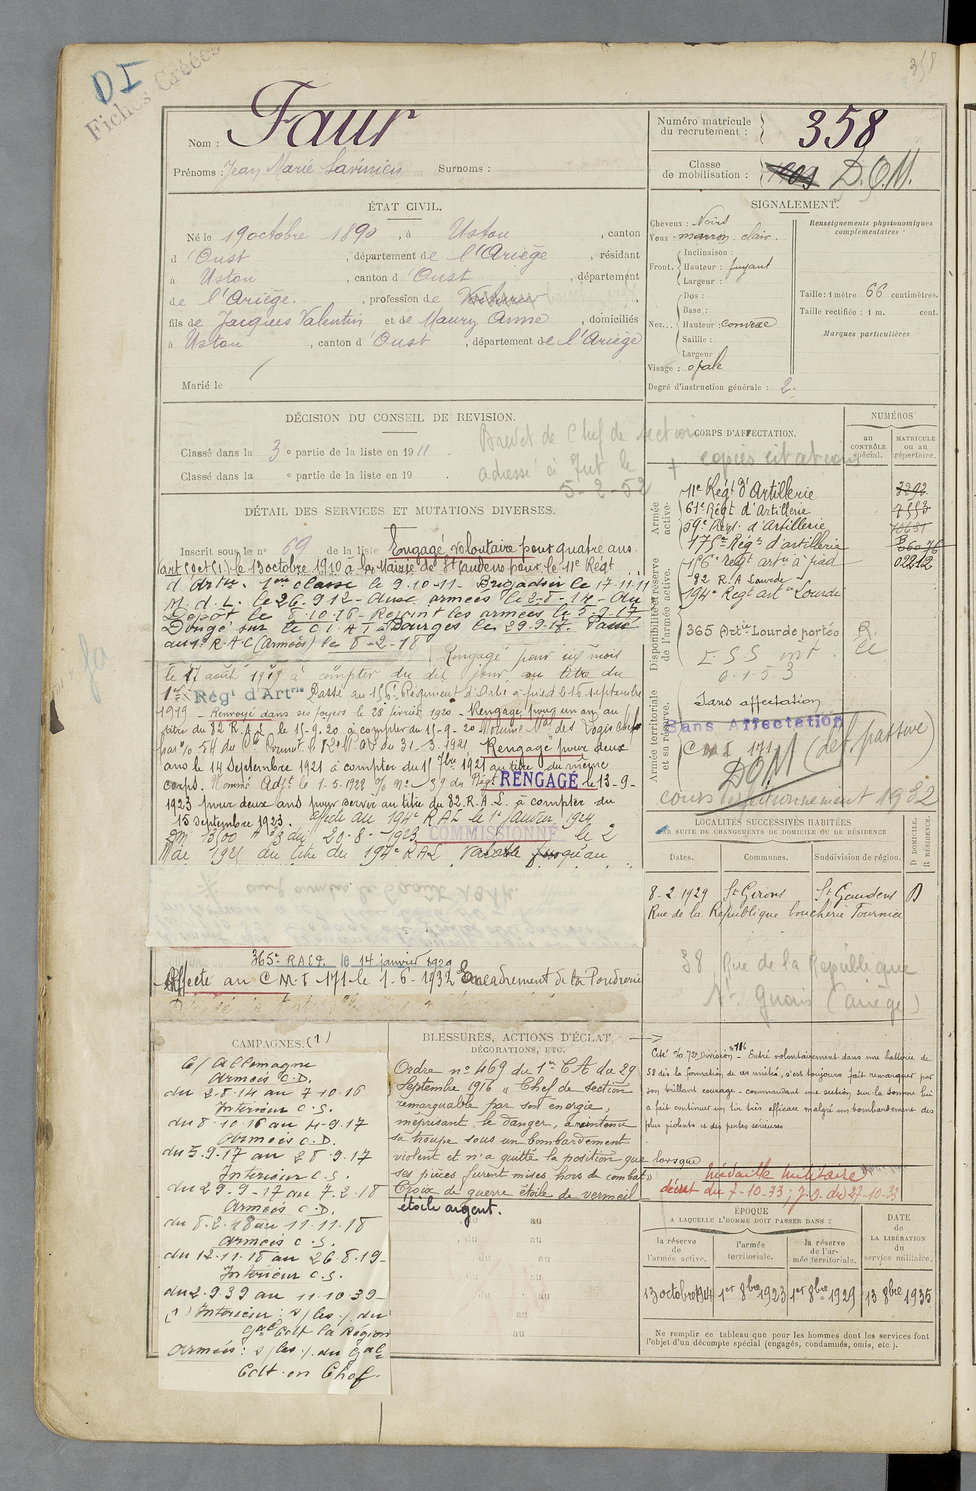 358
DI
Fiches Créées
Nom : Faur
Prénoms : Jean Marie Savinien Surnoms :
Numéro matricule du recrutement : 358
Classe de mobilisation : 1909 D.O.M.
ÉTAT CIVIL.
Né le 19 octobre 1890, à Ustou, canton
d'Oust, département de l'Ariège, résidant
à Ustou, canton d'Oust, département
de l'Ariège, profession de
fils de Jacques Valentin et de Maury Anne, domiciliés
à Ustou, canton d'Oust, département de l'Ariège
Marié le
SIGNALEMENT.
Cheveux : Noirs
Yeux : marron clair.
Front. Inclinaison :
Hauteur : fuyant
Largeur :
Nez... Dos :
Base :
Hauteur : convexe
Saillie :
Largeur
Visage : ovale
Degré d'instruction générale : 2.
Renseignements physionomiques complémentaires :
Taille : 1 mètre 66 centimètres.
Taille rectifiée : 1 m. cent.
Marques particulières
DÉCISION DU CONSEIL DE REVISION.
Classé dans la 3e partie de la liste en 1911.
Classé dans la e partie de la liste en 19 .
Brevet de Chef de section
adressé à
5-2-52
+ copies citations
DÉTAIL DES SERVICES ET MUTATIONS DIVERSES.
Inscrit sous le n° 69 de la liste Engagé volontaire pour quatre ans
le 13 octobre 1910 à la Mairie de St Gaudens pour le 11e Régt
d'Artie. 1ère classe le 9.10.11 - Brigadier le 17.11.11
M.d.L. le 26.9.12 - aux armées le 2-8-14 - au
Dépôt le 8.10.16 - Rejoint les armées le 5.9.17
le 29.9.17. Passé
au R.A.C (armées) le 8-2-18
Rengagé pour six mois
le 17 août 1919 à compter du dit jour au titre du
1er Régt d'Artie Passé au 156e Régiment d'Artie à pied le 16 septembre
1919 - Renvoyé dans ses foyers le 28 février 1920 - Rengagé pour un an au
titre du 82 R.A.L. le 15-9-20 à compter du 15-9-20 Nommé Mal des Logis Chef
du 31-3-1921. Rengagé pour deux
ans le 14 Septembre 1921 à compter du 15 7bre 1921 au titre du même
corps. Nommé Adjt le 1-5-1922 RENGAGÉ le 13-9-
1923 pour deux ans pour servir au titre du 82 R.A.L. à compter du
15 septembre 1923. Affecté au 194e RAL le 1er janvier 1924
20-8-1923 COMMISSIONNÉ le 2
Mai 1925 au titre du 194e RAL
365e RALP. le 14 janvier 1929
Affecté au CMI 171 le 1-6-1932 Encadrement de la Poudrerie
CORPS D'AFFECTATION.
NUMÉROS
au CONTRÔLE spécial.
MATRICULE ou au répertoire.
Armée active.
11e Régt d'Artillerie 3292
61e Régt d'Artillerie
59e Régt d'Artillerie
175e Régt d'artillerie
156e régt artie à pied 02212
Disponibilité et réserve de l'armée active.
82 R.A Lourde
194e Regt artie Lourde
365 Artie Lourde portés
Armée territoriale et sa réserve.
Sans affectation
Sans Affectation
CMI 171
DOM (def. passive)
LOCALITÉS SUCCESSIVES HABITÉES
PAR SUITE DE CHANGEMENTS DE DOMICILE OU DE RÉSIDENCE
D DOMICILE. R RÉSIDENCE.
Dates. Communes. Subdivision de région.
8-2-1929 St Girons St Gaudens D
Rue de la République boucherie Fournié
38 Rue de la République
St Girons (Ariège)
CAMPAGNES. (1)
C/ Allemagne
Armées C.D.
du 2.8.14 au 7.10.16
Intérieur C.S.
du 8.10.16 au 4.9.17
Armées C.D.
du 5.9.17 au 28.9.17
Intérieur C.S.
du 29.9.17 au 7.2.18
Armées C.D.
du 8.2.18 au 11.11.18
Armées C.S.
du 12.11.18 au 26.8.19
Intérieur C.S.
du 2.9.39 au 11.10.39
(1) Intérieur : s/les % du
Gal Cdt la Région
Armées : s/les % du Gal
Cdt en Chef
BLESSURES, ACTIONS D'ÉCLAT,
DÉCORATIONS, ETC.
Ordre n° 469 du 1er CA du 29
Septembre 1916 « Chef de section
remarquable par son énergie,
méprisant le danger, a maintenu
sa troupe sous un bombardement
violent et n'a quitté la position que lorsque
ses pièces furent mises hors de combat »
Croix de guerre étoile de vermeil
étoile argent.
du au
du au
au
au
au
au
Cité % 72e Division n°186 - Entré volontairement dans une batterie de
58 dès la formation de ces unités, s'est toujours fait remarquer par
son brillant courage - commandant une section, sur la Somme lui
a fait continuer un tir très efficace malgré un bombardement des
plus violents et des pertes sérieuses
Médaille militaire
décret du 7-10-33 ; J.O. du 27-10-33
ÉPOQUE
A LAQUELLE L'HOMME DOIT PASSER DANS :
la réserve de l'armée active. l'armée territoriale. la réserve de l'armée territoriale.
DATE de LA LIBÉRATION du service militaire.
13 octobre 1914 1er 8bre 1923 1er 8bre 1929 13 8bre 1935
Ne remplir ce tableau que pour les hommes dont les services font
l'objet d'un décompte spécial (engagés, condamnés, omis, etc.).